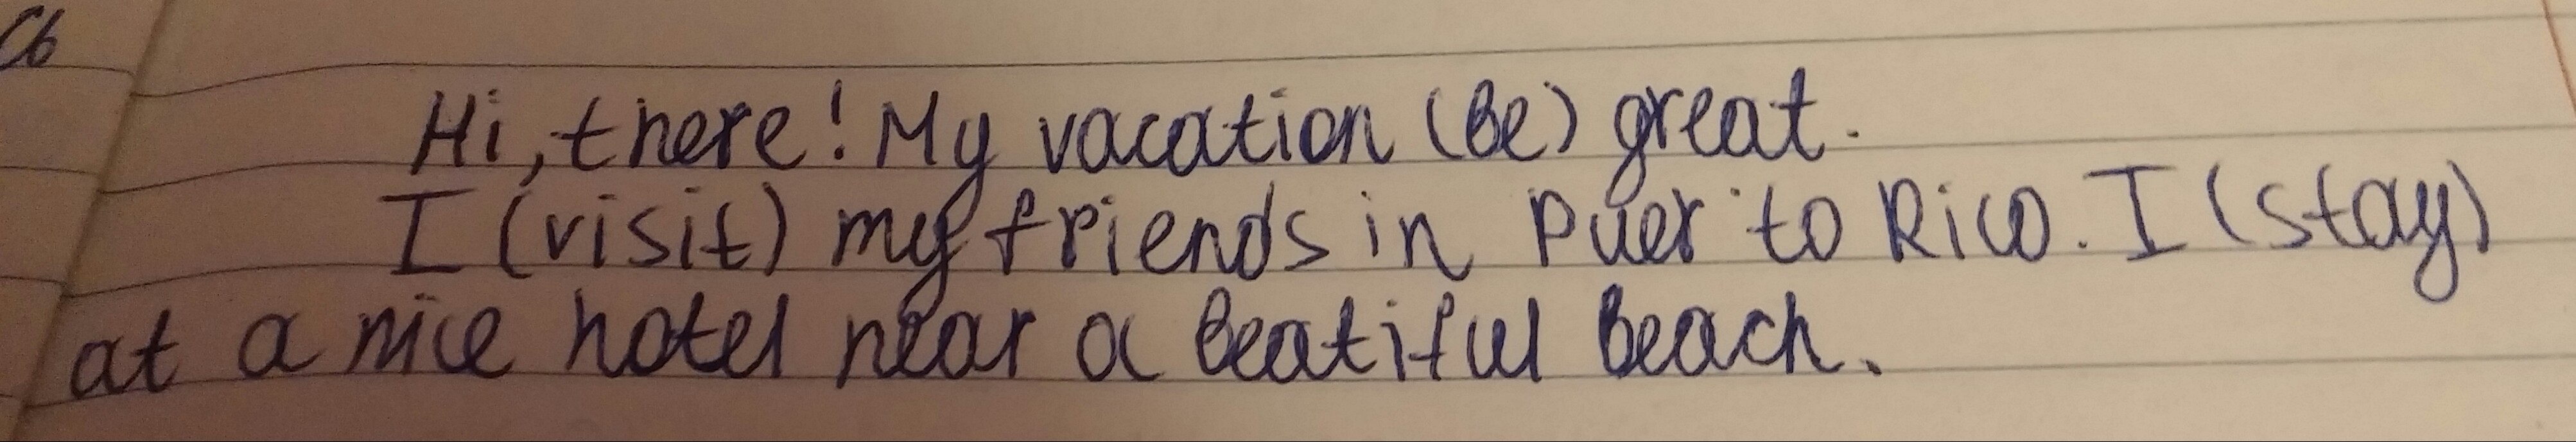 Hi, there! My vacation (be) great.
I (visit) my friends in Puer to Rico. I (stay)
at a nice hotel near a beatiful beach.